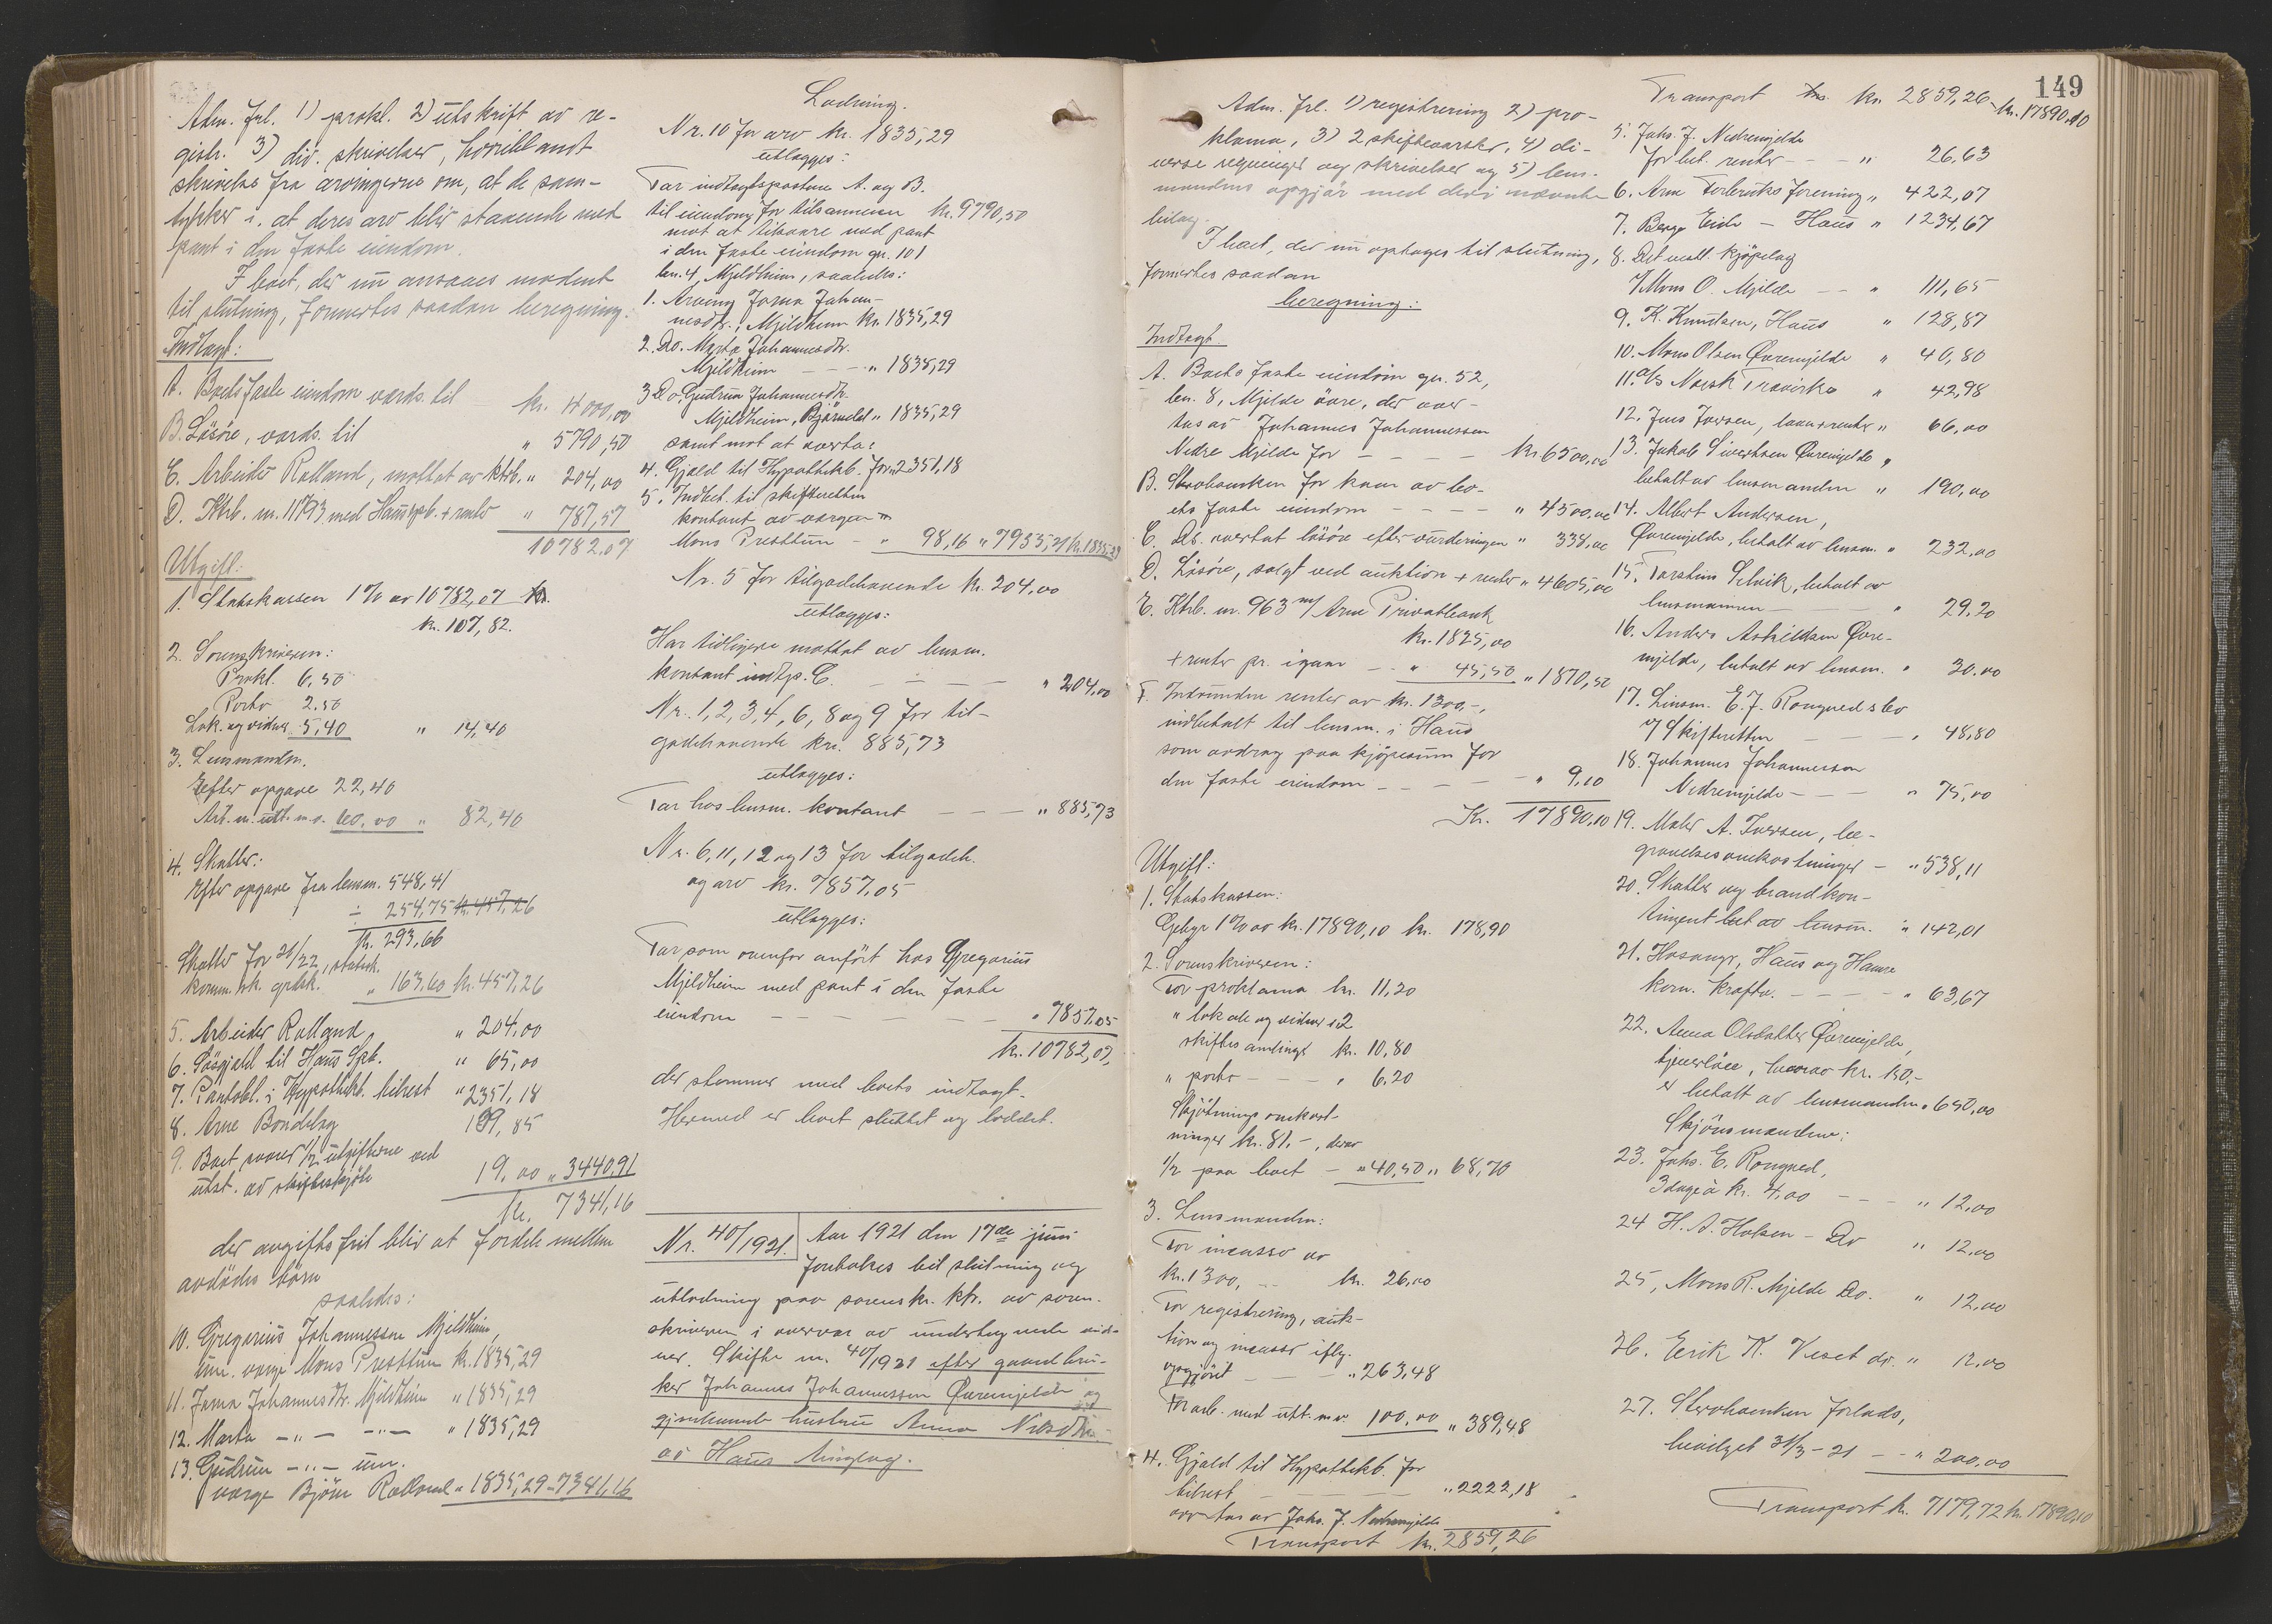 Adm. frl. 1) prokl. 2) utskrift av re-
gistr. 3) div. skrivelser, hvoriblandt
skrivelse fra arvingerne om, at de sam-
tykker i, at deres arv blir staaende med
pant i den faste eiendom.
I boet, der nu ansaaes modent
til slutning, formertes saadan beregning:
Indtægt:
A. Boets faste eiendom værds. til kr. 4000,00
B. Lösöre, værds. til " 5790,50
C. Arbeider Rolland, mottat av ktrb. " 204,00
D. Ktrb. nr. 11793 med Haus spb. + renter " 787,57
10782,07
Utgift:
1. Statskassen 1% av 10782,07
kr. 107,82.
2. Sorenskriveren:
Prokl. 6,50
Porto 2.50
Lok. og vidner 5,40 " 14,40
3. Lensmanden.
Efter opgave 22,40
Arb. m. utl. m. v. 60,00 " 82,40
4. Skatter:
Efter opgave fra lensm. 548,41
÷ 254,75 kr. 457,26
kr. 293,66
Skatter for 21/22, statssk.
komm.sk. grdsk. " 163,60 kr. 457,26
5. Arbeider Rolland " 204,00
6. Lösgjæld til Haus Spb. " 65,00
7. Pantobl. i Hypothekb. tilrest " 2351,18
8. Arne Bondelag 199,85
9. Boet svarer 1/2 utgifterne ved
utst. av skifteskjöte 19,00 " 3440,91
kr. 7341,16
der avgiftsfrit blir at fordele mellem
avdödes börn
saaledes:
10. Gregorius Johannessen Mjeldheim,
um. værge Mons Presttun kr. 1835,29
11. Jorna Johannesdtr. Mjeldheim " 1835,29
12. Marta -"- -"- " 1835,29
13. Gudrun -"- um.
værge Björn Rolland " 1835,29 - 7341,16
Lodning.
Nr. 10 for arv kr. 1835,29
utlægges:
Tar indtægtsposterne A. og B.
til eiendom for tilsammen kr. 9790,50
mot at tilsvare med pant
i den faste eiendom gn. 101
bn. 4, Mjeldheim, saaledes:
1. Arving Jorna Johan-
nesdtr., Mjeldheim kr. 1835,29
2. Do. Marta Johannesdtr.
Mjeldheim - - - " 1835,29
3 Do. Gudrun Johannesdtr.
Mjeldheim, " 1835,29
samt mot at overta:
4. Gjæld til Hypothekb. for " 2351,18
5. Indbet. til skifteretten
kontant av værgen
Mons Presttun - " 98,16 " 7955,21 kr. 1835,29
Nr. 5 for tilgodehavende kr. 204,00
utlægges:
Har tidligere mottat av lensm.
kontant indtp. C. - - - " 204,00
Nr. 1, 2, 3, 4, 6, 8 og 9 for til-
godehavende kr. 885,73
utlægges:
Tar hos lensm. kontant - - - " 885,73
Nr. 6, 11, 12 og 13 for tilgodeh.
og arv kr. 7857,05
utlægges:
Tar som ovenfor anfört hos Gregorius
Mjeldheim med pant i den faste
eiendom - - - - - " 7857,05
kr. 10782,07,
der stemmer med boets indtægt.
Hermed er boet sluttet og loddet.
Nr. 40/1921. Aar 1921 den 17de juni
foretokes til slutning og
utlodning paa sorenskr. ktr. av soren-
skriveren i overvær av undertegnede vid-
ner. Skifte nr. 40/1921 efter gaardbru-
ker Johannes Johannessen Övremjelde og
gjenlevende hustru Anna Nilsdtr.
av Haus tinglag.
149
Adm. frl. 1) registrering 2) pro-
klama, 3) 2 skiftevarsler, 4) di-
verse regninger og skrivelser og 5) lens-
mandens opgjör med deri nævnte
bilag.
I boet, der nu optages til slutning,
formertes saadan
beregning:
Indtægt.
A. Boets faste eiendom gn. 52,
bn. 8, Mjelde övre, der over-
tas av Johannes Johannessen
Nedre Mjelde for - - - - kr. 6500,00
B. for kaar av bo-
ets faste eiendom - - - - " 4500,00
C. Do. overtat lösöre efter vurderingen " 338,00
D. Lösöre, solgt ved auktion + renter " 4605,00
E. Ktrb. nr. 963 m/ Arne Privatbank
kr. 1825,00
+ renter pr. igaar - - " 45,50 " 1870,50
F. Indvundne renter av kr. 1300,-,
indbetalt til lensm. i Haus
som avdrag paa kjöpesum for
den faste eiendom - - - - " 9,10
Kr. 17890,10
Utgift:
1. Statskassen:
Gebyr 1% av kr. 17890,10 kr. 178,90
2. Sorenskriveren:
For proklama kr. 11,20
" lokale og vidner i 2
skiftesamlinger kr. 10,80
" porto - - - " 6,20
Skjötningsomkost-
ninger kr. 81.-, derav
1/2 paa boet - " 40,50 " 68,70
3. Lensmanden:
For incasso av
kr. 1300, - - kr. 26,00
For registrering, auk-
tion og incasso iflg.
opgjöret - - - " 263,48
For arb. med utl. m.v. 100,00 " 389,48
4. Gjæld til Hypothekb. for
tilrest - - - - " 2222,18
overtas av Johs. J. Nedremjelde
Transport kr. 2859,26
Transport kr. 2859,26 - kr. 17890,10
5. Johs. J. Nedremjelde
for bet. renter - - - " 26,63
6. Arne Forbruks forening " 422,07
7. Berge Eide - Haus " 1234,67
8. Det vestl. kjöpelag
v/ Mons O. Mjelde - - " 111,65
9. K. Knudsen, Haus " 128,87
10. Mons Olsen Övremjelde " 40,80
11. a/s Norsk Traviske " 42,98
12. Jens Iversen, laan + renter " 66,00
13. Jakob Sivertsen Övremjelde,
betalt av lensmanden " 190,00
14. Albert Andersen,
Övremjelde, betalt av lensm. " 232,00
15. Torstein Selvik, betalt av
lensmannen - - - " 29.20
16. Anders Askildsen Övre-
mjelde, betalt av lensm. " 30.00
17. Lensm. E. J. Rongved s bo
v/ Skifteretten - - - " 48,80
18. Johannes Johannessen
Nedremjelde - - - " 75,00
19. Maler A. Iversen, be-
gravelsesomkostninger - " 538,11
20. Skatter og brandkon-
tingent bet av lensm. " 142,01
21. Hosanger, Haus og Hamre
kom. kraftv. - - - - " 63,67
22. Anna Olsdatter Övremjelde,
tjenerlön, hvorav kr. 150,-
er betalt av lensmanden " 650,00
Skjönsmændene:
23. Johs. E. Rongved,
3 dage à kr. 4,00 - - - " 12,00
24 H. A. Holsen - Do " 12,00
25, Mons R. Mjelde Do. " 12,00
26. Erik K. Veset do. " 12,00
27. forlods,
bevilget 31/3 - 21 - - " 200,00
Transport kr. 7179,72 kr. 17890,10